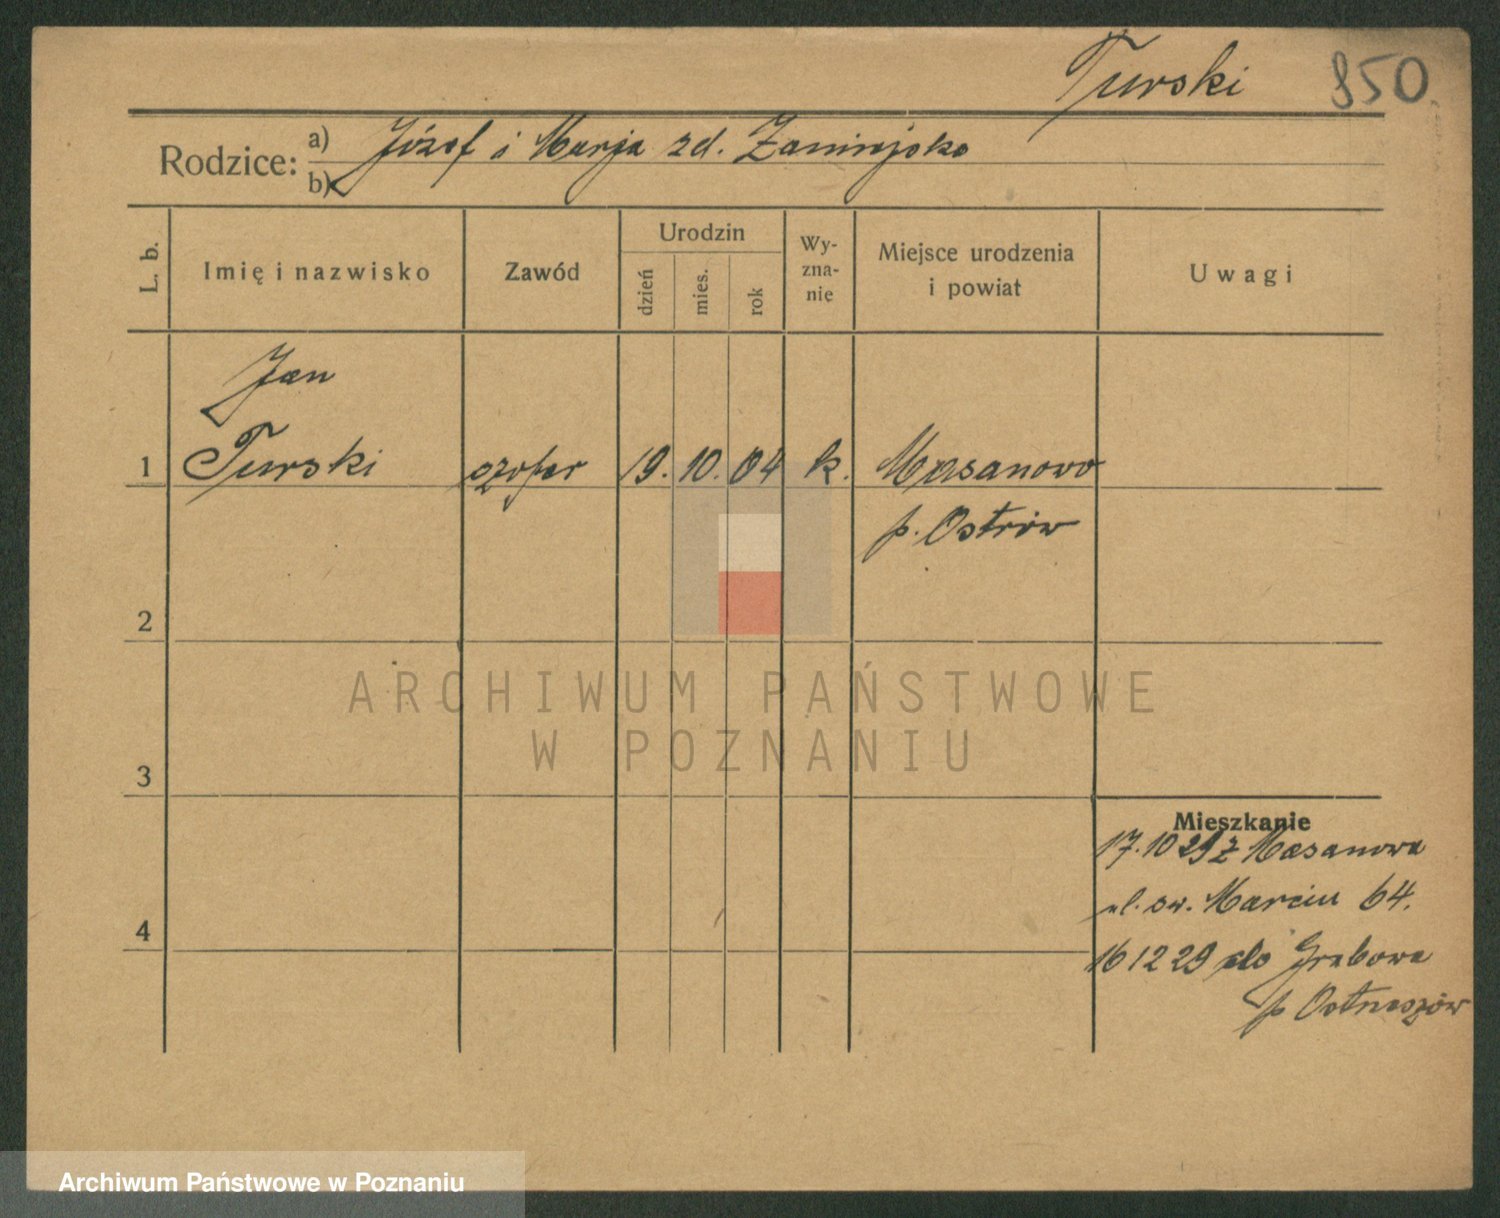 Turski 850
Rodzice: a) Józef i Marja zd.
b)
L. b. Imię i nazwisko Zawód Urodzin dzień mies. rok Wy-zna-nie Miejsce urodzenia i powiat Uwagi
Jan
1 Turski szofer 19. 10. 04 k. Masanowo
p. Ostrów
2
3
Mieszkanie
17.10 29 z Masanowa
ul. św. Marcin 64.
4
16 12 29 do Grabowa
p
ARCHIWUM PAŃSTWOWE
W POZNANIU
Archiwum Państwowe w Poznaniu